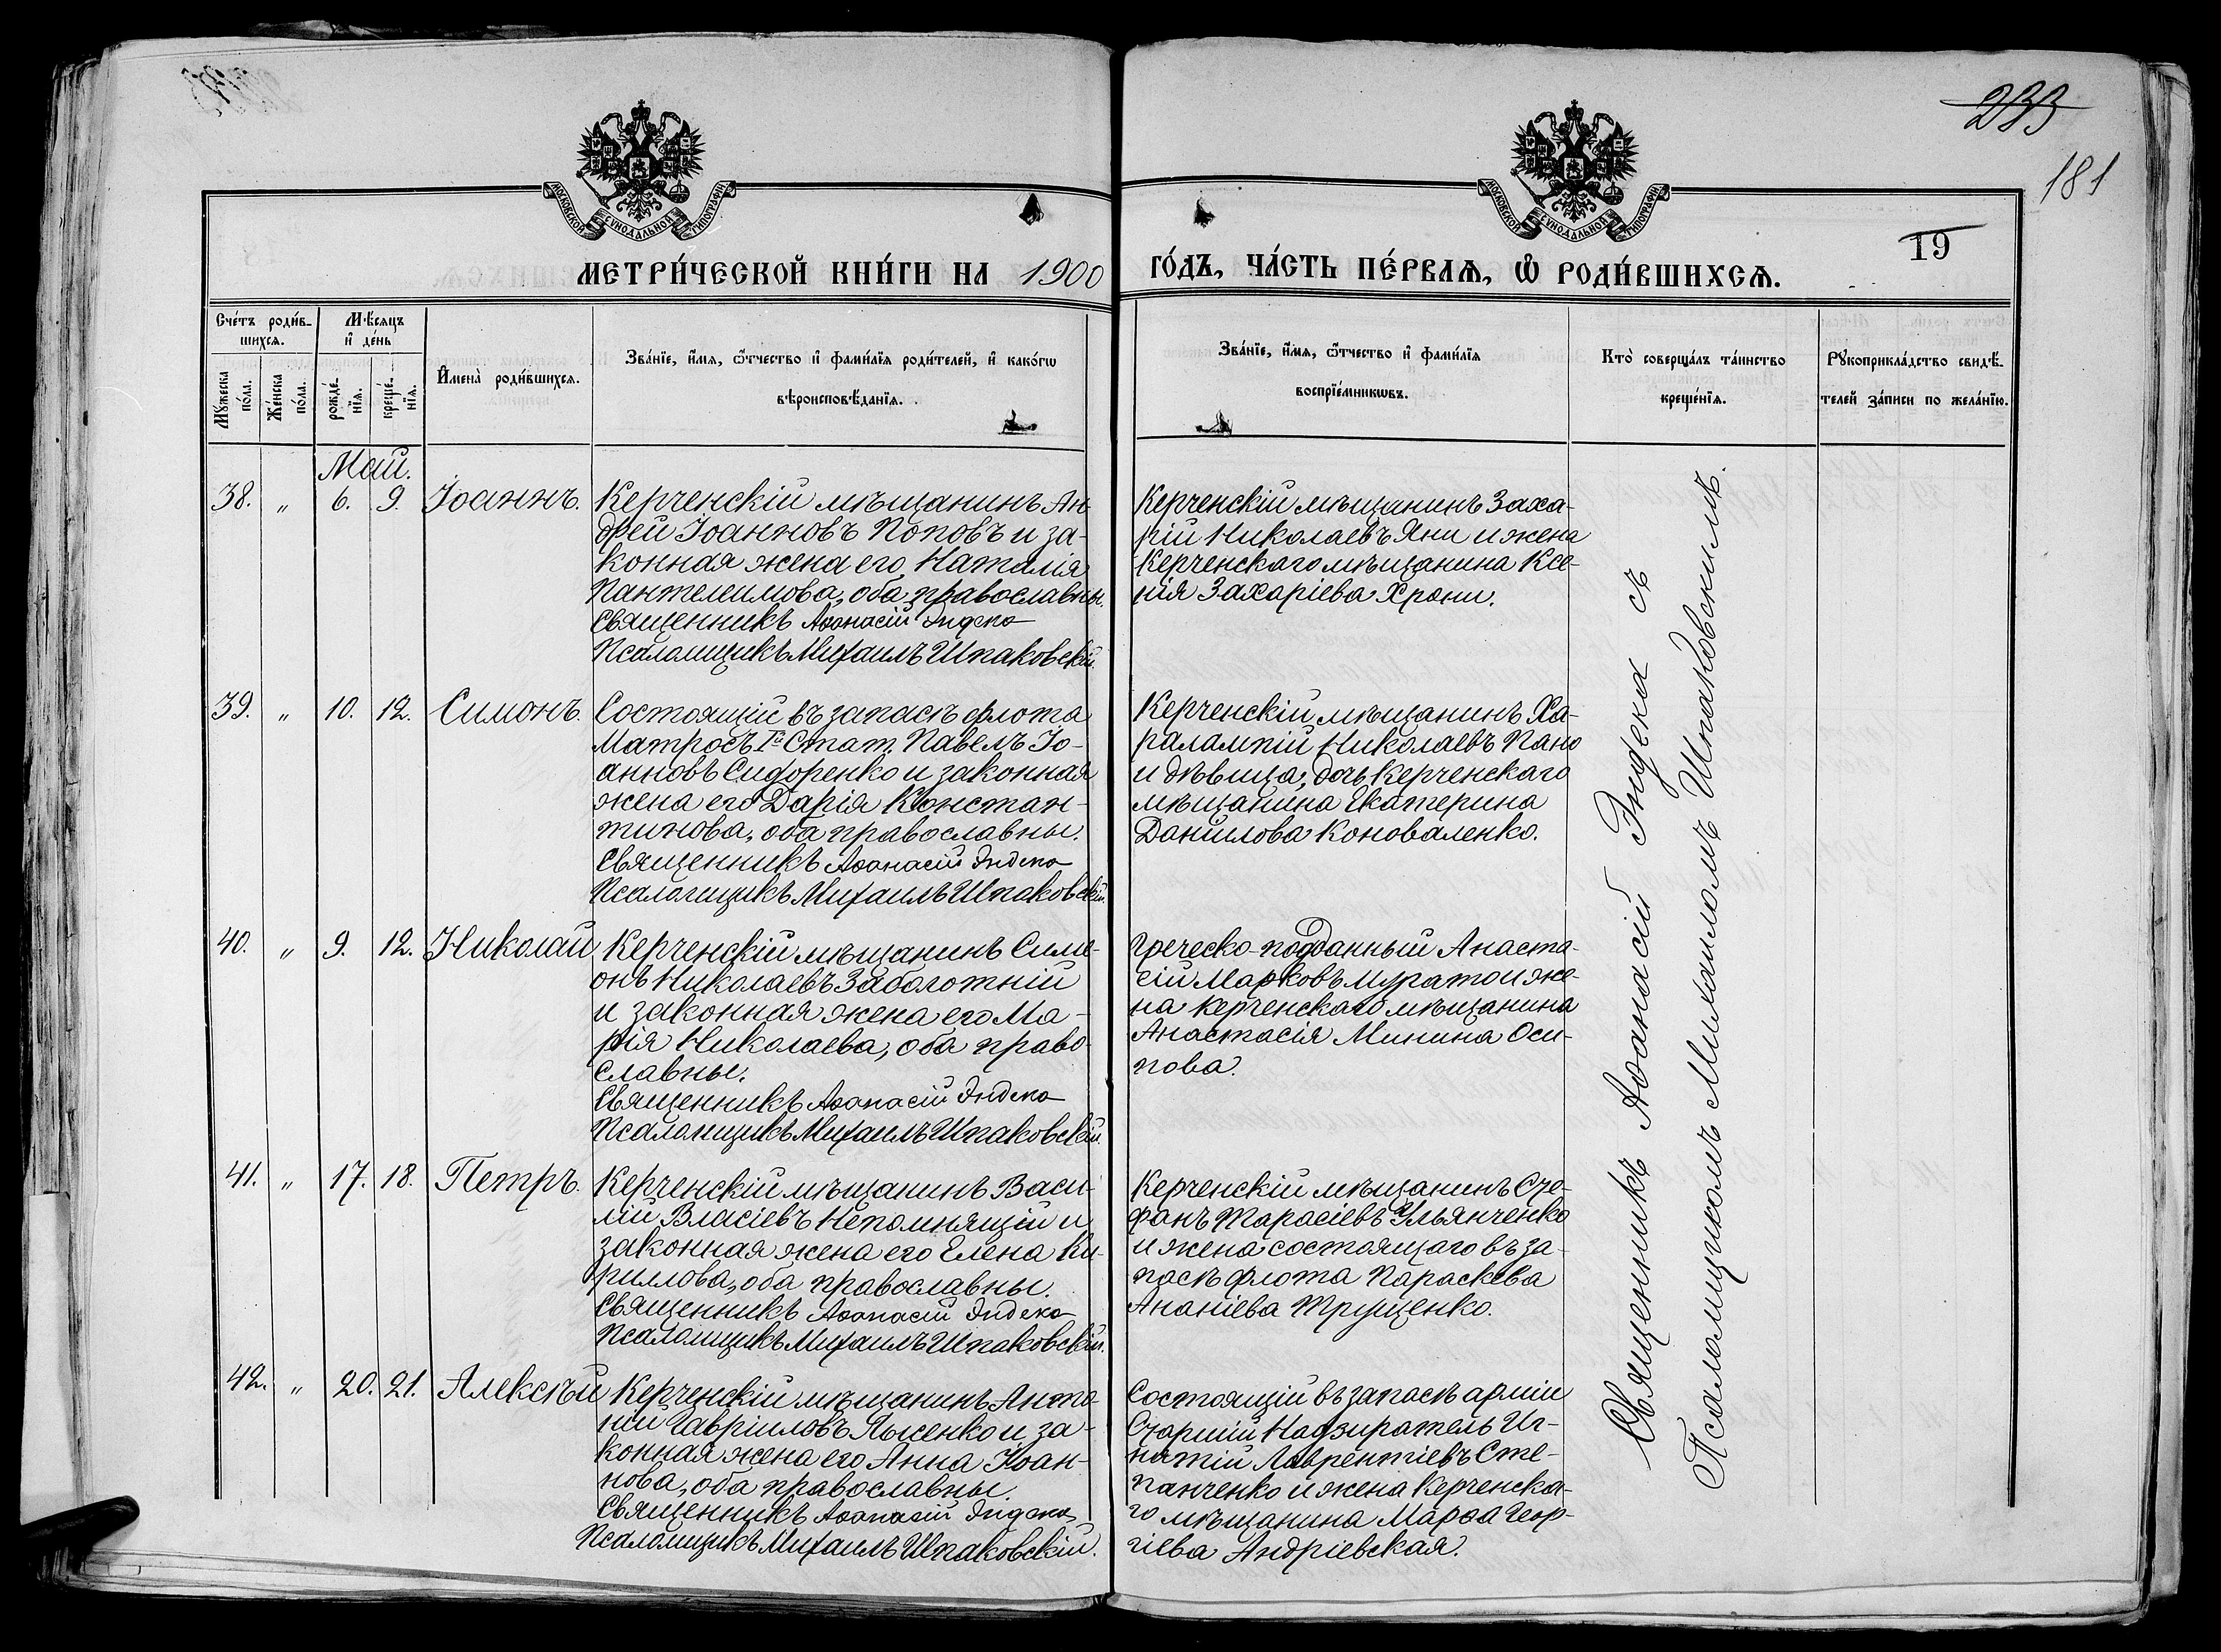 233
181
19
МОСКОВСКОЙ СУНОДАЛЬНОЙ ТИПОГРАФІИ
МОСКОВСКОЙ СУНОДАЛЬНОЙ ТИПОГРАФІИ
МЕТРИ́ЧЕСКОЙ КНИ́ГИ НА 1900 ГО́ДЪ, ЧА́СТЬ ПЕ́РВАѦ, Ѡ РОДИ́ВШИХСѦ.
Сче́тъ роди́в-
шихся.
Мꙋ́жеска
по́ла.
Же́нска
по́ла.
Мѣ́сяцъ
и҆ де́нь
рожде́-
нїя.
креще́-
нїя.
И҆мена̀ роди́вшихся.
Зва́нїе, и҆́мя, ѻ҆́тчество и҆ фами́лїя роди́телей, и҆ како́гѡ
вѣроисповѣ́данїя.
Зва́нїе, и҆́мя, ѻ҆́тчество и҆ фами́лїя
воспрїе́мникѡвъ.
Кто̀ соверша́лъ та́инство
креще́нїя.
Рꙋкоприкла́дство свидѣ́-
телей за́писи по жела́нїю.
Май.
38. " 6. 9. Іоаннъ.
Керченскій мѣщанинъ Ан-
дрей Іоанновъ Поповъ и за-
конная жена его Наталія
Пантелеимова, оба православны.
Священникъ Аѳанасій Индека
Псаломщикъ Михаилъ Шпаковскій.
Керченскій мѣщанинъ Заха-
рій Николаевъ Яни и жена
Керченскаго мѣщанина Ксе-
нія Захаріева Хрони.
39. " 10. 12. Симонъ.
Состоящій въ запасѣ флота
Матросъ Iй Стат. Павелъ Іо-
анновъ Сидоренко и законная
жена его Дарія Констан-
тинова, оба православны.
Священникъ Аѳанасій Индека
Псаломщикъ Михаилъ Шпаковскій.
Керченскій мѣщанинъ Ха-
ралампій Николаевъ Пано
и дѣвица, дочь Керченскаго
мѣщанина Екатерина
Данилова Коноваленко.
40. " 9. 12. Николай
Керченскій мѣщанинъ Симе-
онъ Николаевъ Заболотній
и законная жена его Ма-
рія Николаева, оба право-
славны.
Священникъ Аѳанасій Индека
Псаломщикъ Михаилъ Шпаковскій.
Греческо-подданный Анаста-
сій Марковъ Мурато и же-
на керченскаго мѣщанина
Анастасія Минина Оси-
пова.
41. " 17. 18. Петръ.
Керченскій мѣщанинъ Васи-
лій Власіевъ Непомнящій и
законная жена его Елена Ки-
риллова, оба православны.
Священникъ Аѳанасій Индека
Псаломщикъ Михаилъ Шпаковскій.
Керченскій мѣщанинъ Сте-
фанъ Тарасіевъ Ульянченко
и жена состоящаго въ за-
пасѣ флота Параскева
Ананіева Трущенко.
42. " 20. 21. Алексѣй
Керченскій мѣщанинъ Анто-
ній Гавріиловъ Лысенко и за-
конная жена его Анна Іоан-
нова, оба православны.
Священникъ Аѳанасій Индека
Псаломщикъ Михаилъ Шпаковскій.
Состоящій въ запасѣ арміи
Старшій Надзиратель Иг-
натій Лаврентіевъ Сте-
панченко и жена Керченска-
го мѣщанина Марѳа Геор-
гіева Андріевская.
Священникъ Аѳанасій Индека съ
Псаломщикомъ Михаиломъ Шпаковскимъ.